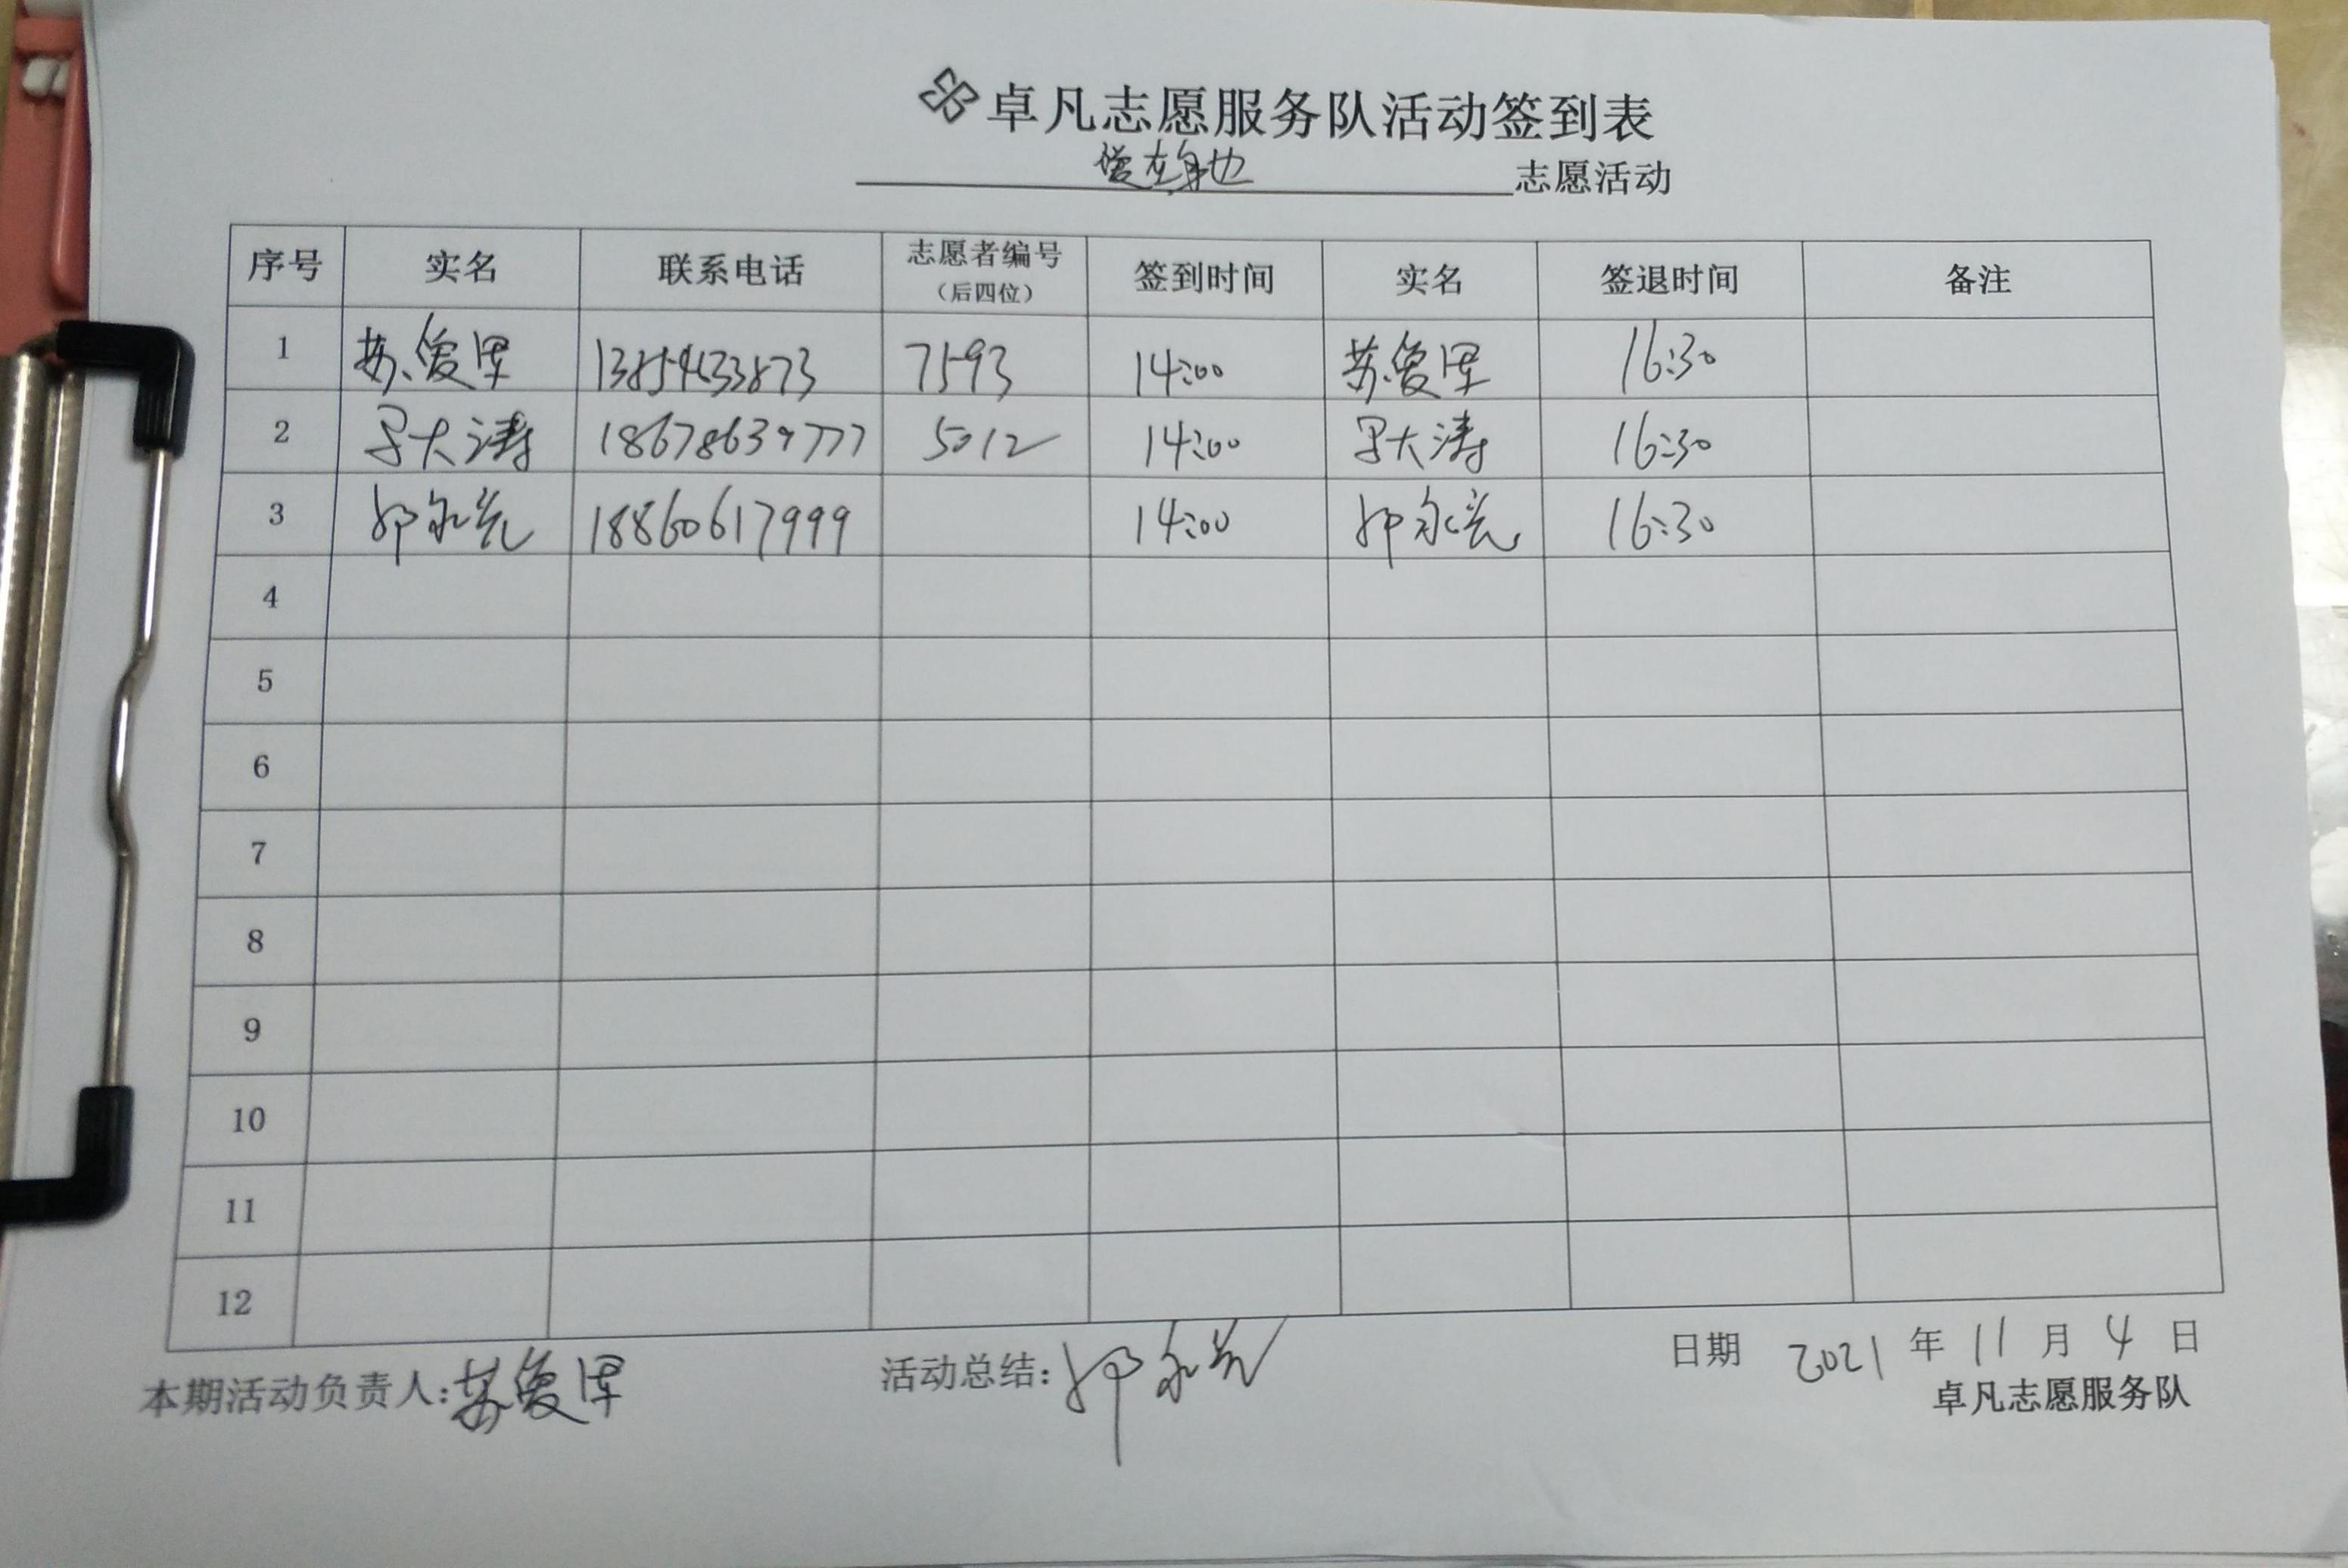 卓凡志愿服务队活动签到表
爱在身边 志愿活动
序号 实名 联系电话 志愿者编号（后四位） 签到时间 实名 签退时间 备注
1 苏爱军 13854633873 7593 14:00 苏爱军 16:30
2 大涛 18678639777 5012 14:00 大涛 16:30
3 邓永光 18860617999 14:00 邓永光 16:30
4
5
6
7
8
9
10
11
12
本期活动负责人:苏爱军 活动总结:邓永光 日期 2021 年 11 月 4 日
卓凡志愿服务队